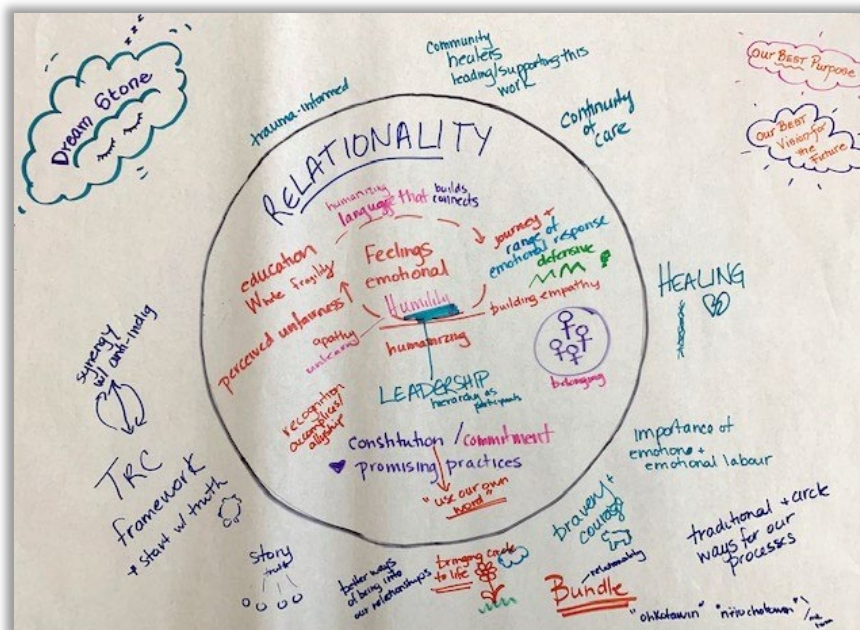 Dream Stone
zzz
trauma-informed
community
healers
leading/supporting this
work
continuity
of
care
Our BEST Purpose
Our BEST
Vision for
the
Future
RELATIONALITY
humanizing
language that builds
connects
education
White fragility
perceived unfairness
Feelings
emotional
Humility
humanizing
apathy
unlearn
journey +
range of
emotional response
defensive
building empathy
belonging
LEADERSHIP
hierarchy as
participants
recognition
accomplices/
allyship
Constitution / commitment
promising practices
"use our own
word"
HEALING
synergy
w/ anti-indig
TRC
framework
+ start w/ truth
importance of
emotions +
emotional labour
bravery +
courage
traditional + circle
ways for our
processes
story
truth
better ways
of being into
our relationships
bringing circle
to life
Bundle
relationality